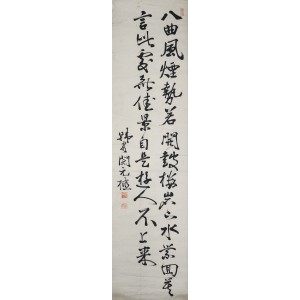 八曲風煙勢若開鼓樓岩下水縈回莫
言此處無佳景自是遊人不上來
元